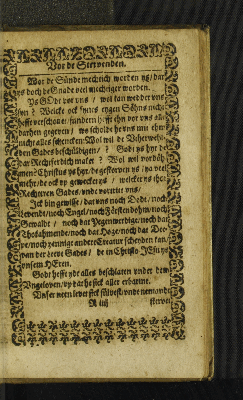 Vor de Stervenden.
Wor de Sünde mechtich worden ys / dar
ys doch de Gnade veel mechtiger worden.
Ys GOdt vor uns / wol kan wedder uns
syn? Welcke ock synes egen Söhns nicht
hefft verschonet / sundern hefft ehn vor uns alle
darhen gegeven / wo scholde he uns mit ehm
nicht alles schencken? Wol wil de Uthervehl-
den Gades beschüldigen? Godt ys hyr de
dar Rechtferdich maket? Wol wil vordöh-
men? Christus ys hyr / de gestorven ys / ja veel
mehr / de ock up gewecket ys / welcker ys thor
Rechteren Gades / unde vortritt uns /
Ick bin gewisse / dat uns noch Dodt / noch
Levendt / noch Engel / noch Förstendohm / noch
Gewaldt / noch dat Jegenwerdige / noch dat
Thokahmende / noch dat Hoge / noch dat Die-
pe / noch jennige andere Creatur scheiden kan /
van der Leve Gades / de in Christo JEsu ys
unsem HEren.
Godt hefft ydt alles beschlaten under dem
Ungeloven / up dat he sick aller erbarme.
Unser nein levet sick sülvest / unde nemandt
R iiij
stervet